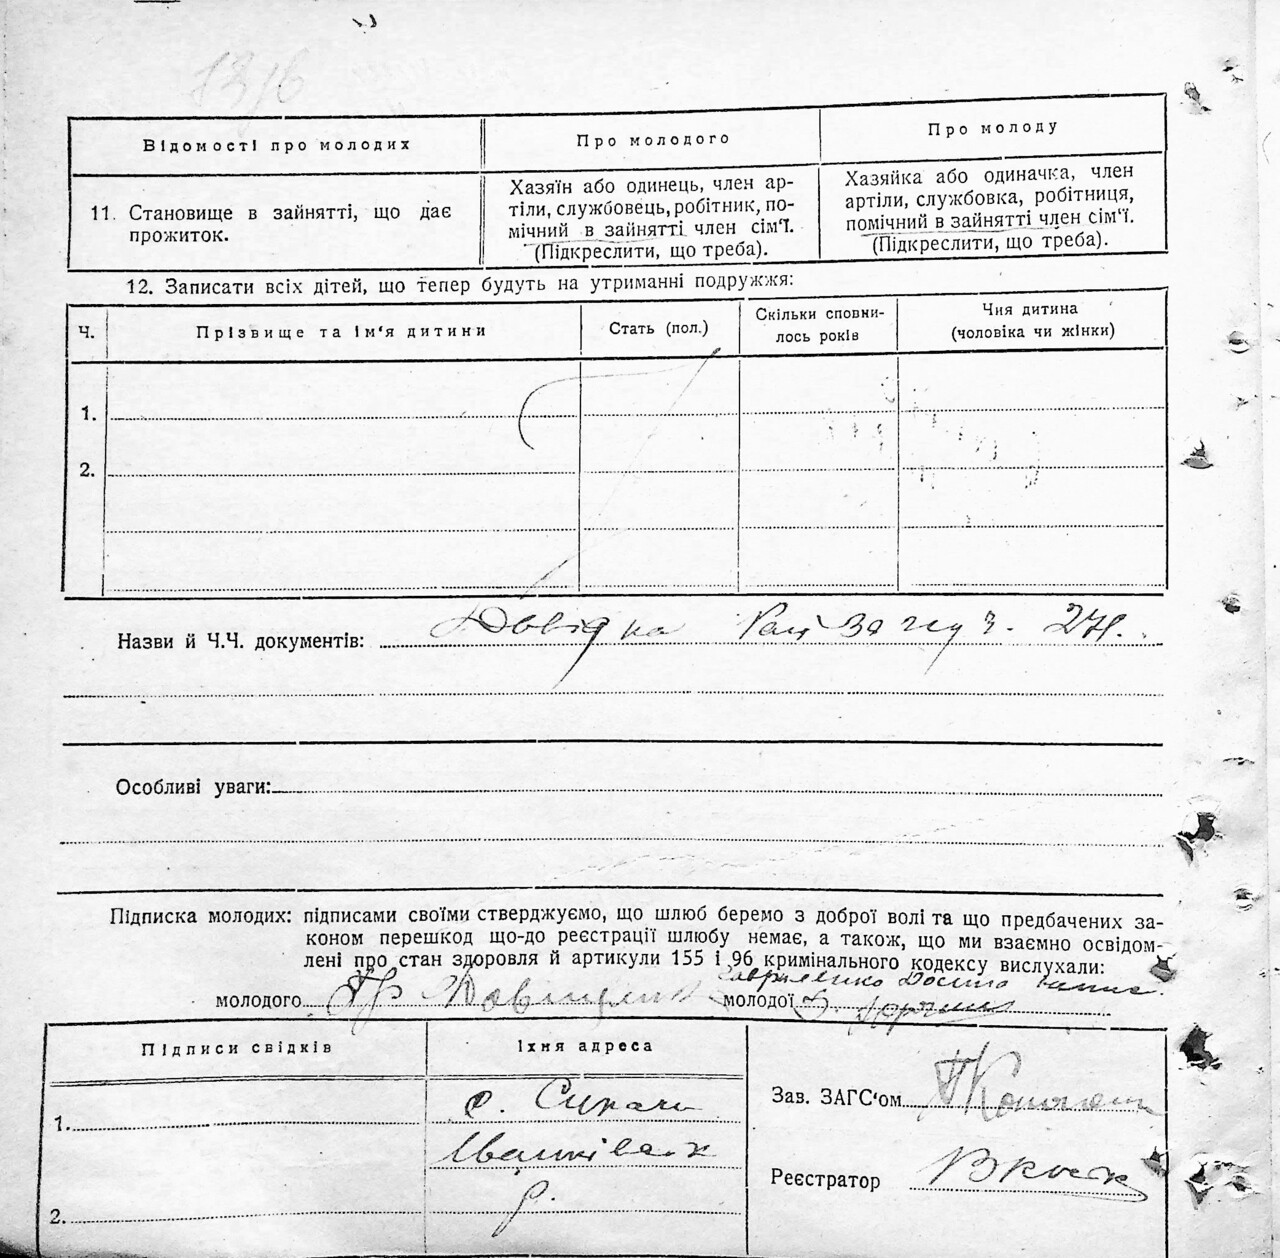 1316
Відомості про молодих
Про молодого
Про молоду
11. Становище в зайнятті, що дає
прожиток.
Хазяїн або одинець, член ар-
тіли, службовець, робітник, по-
мічний в зайнятті член сім'ї.
(Підкреслити, що треба).
Хазяйка або одиначка, член
артіли, службовка, робітниця,
помічний в зайнятті член сім'ї.
(Підкреслити, що треба).
12. Записати всіх дітей, що тепер будуть на утриманні подружжя:
Ч.
Прізвище та ім'я дитини
Стать (пол.)
Скільки сповни-
лось років
Чия дитина
(чоловіка чи жінки)
1.
2.
Назви й Ч.Ч. документів: Довідка
Особливі уваги:
Підписка молодих: підписами своїми стверджуємо, що шлюб беремо з доброї волі та що предбачених за-
коном перешкод що-до реєстрації шлюбу немає, а також, що ми взаємно освідом-
лені про стан здоровля й артикули 155 і 96 кримінального кодексу вислухали:
молодого
молодої
Підписи свідків
Їхня адреса
1.
с.
2.
р.
Зав. ЗАГС'ом
Реєстратор